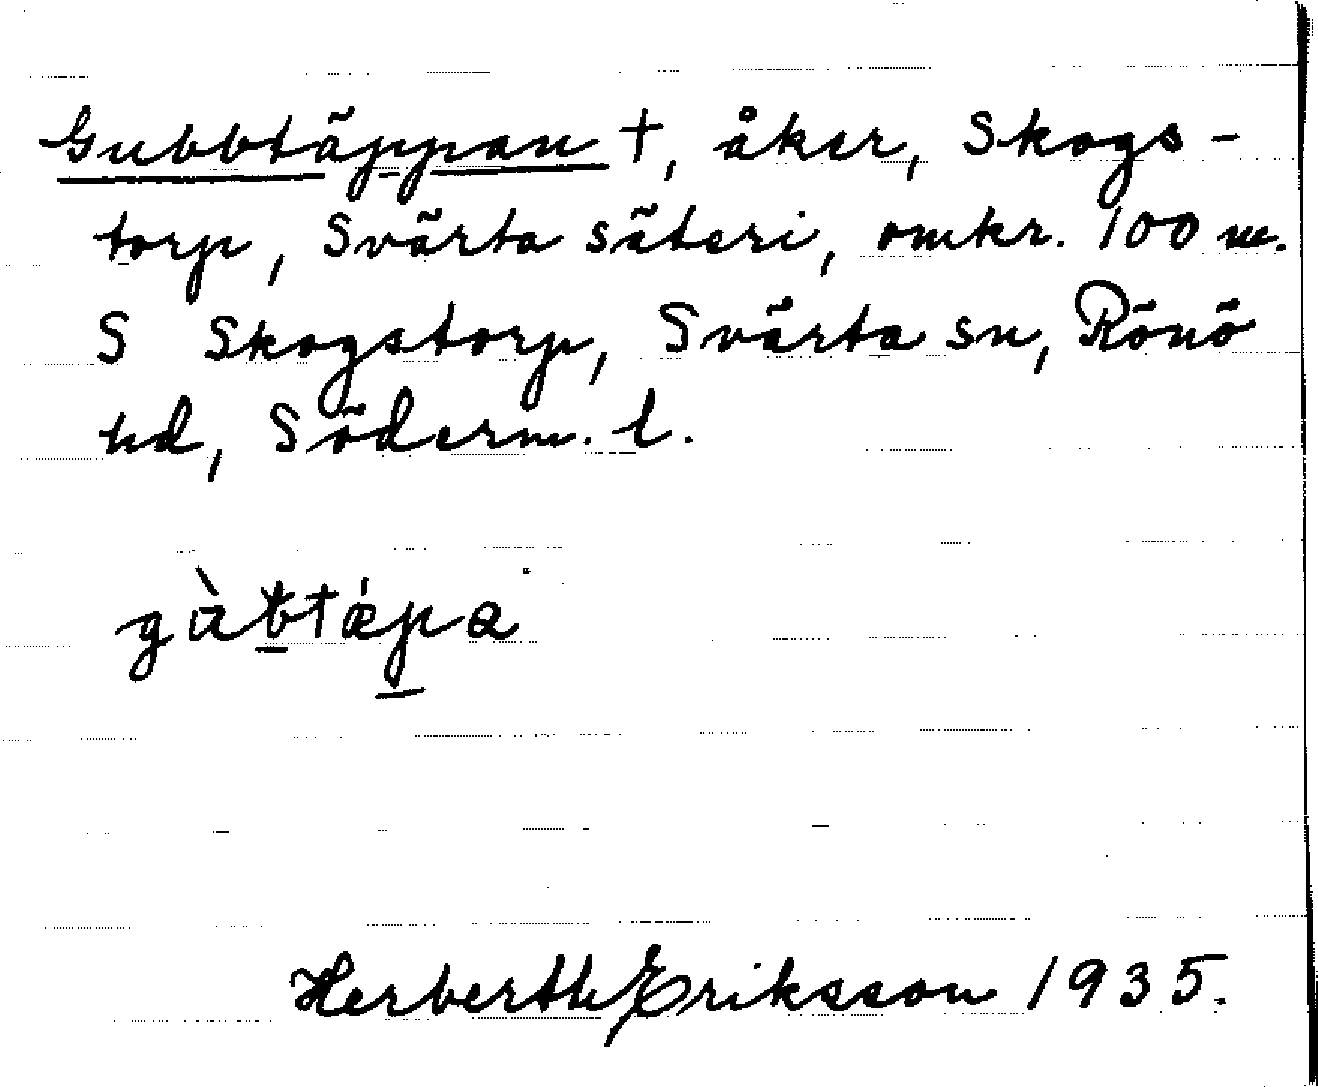 Gubbtäppan †, åker, Skogs-
torp, Svärta säteri, omkr. 100 m.
S Skogstorp, Svärta sn, Rönö
hd, Söderm. l.
gàbtǽpa
Herberth Eriksson 1935.